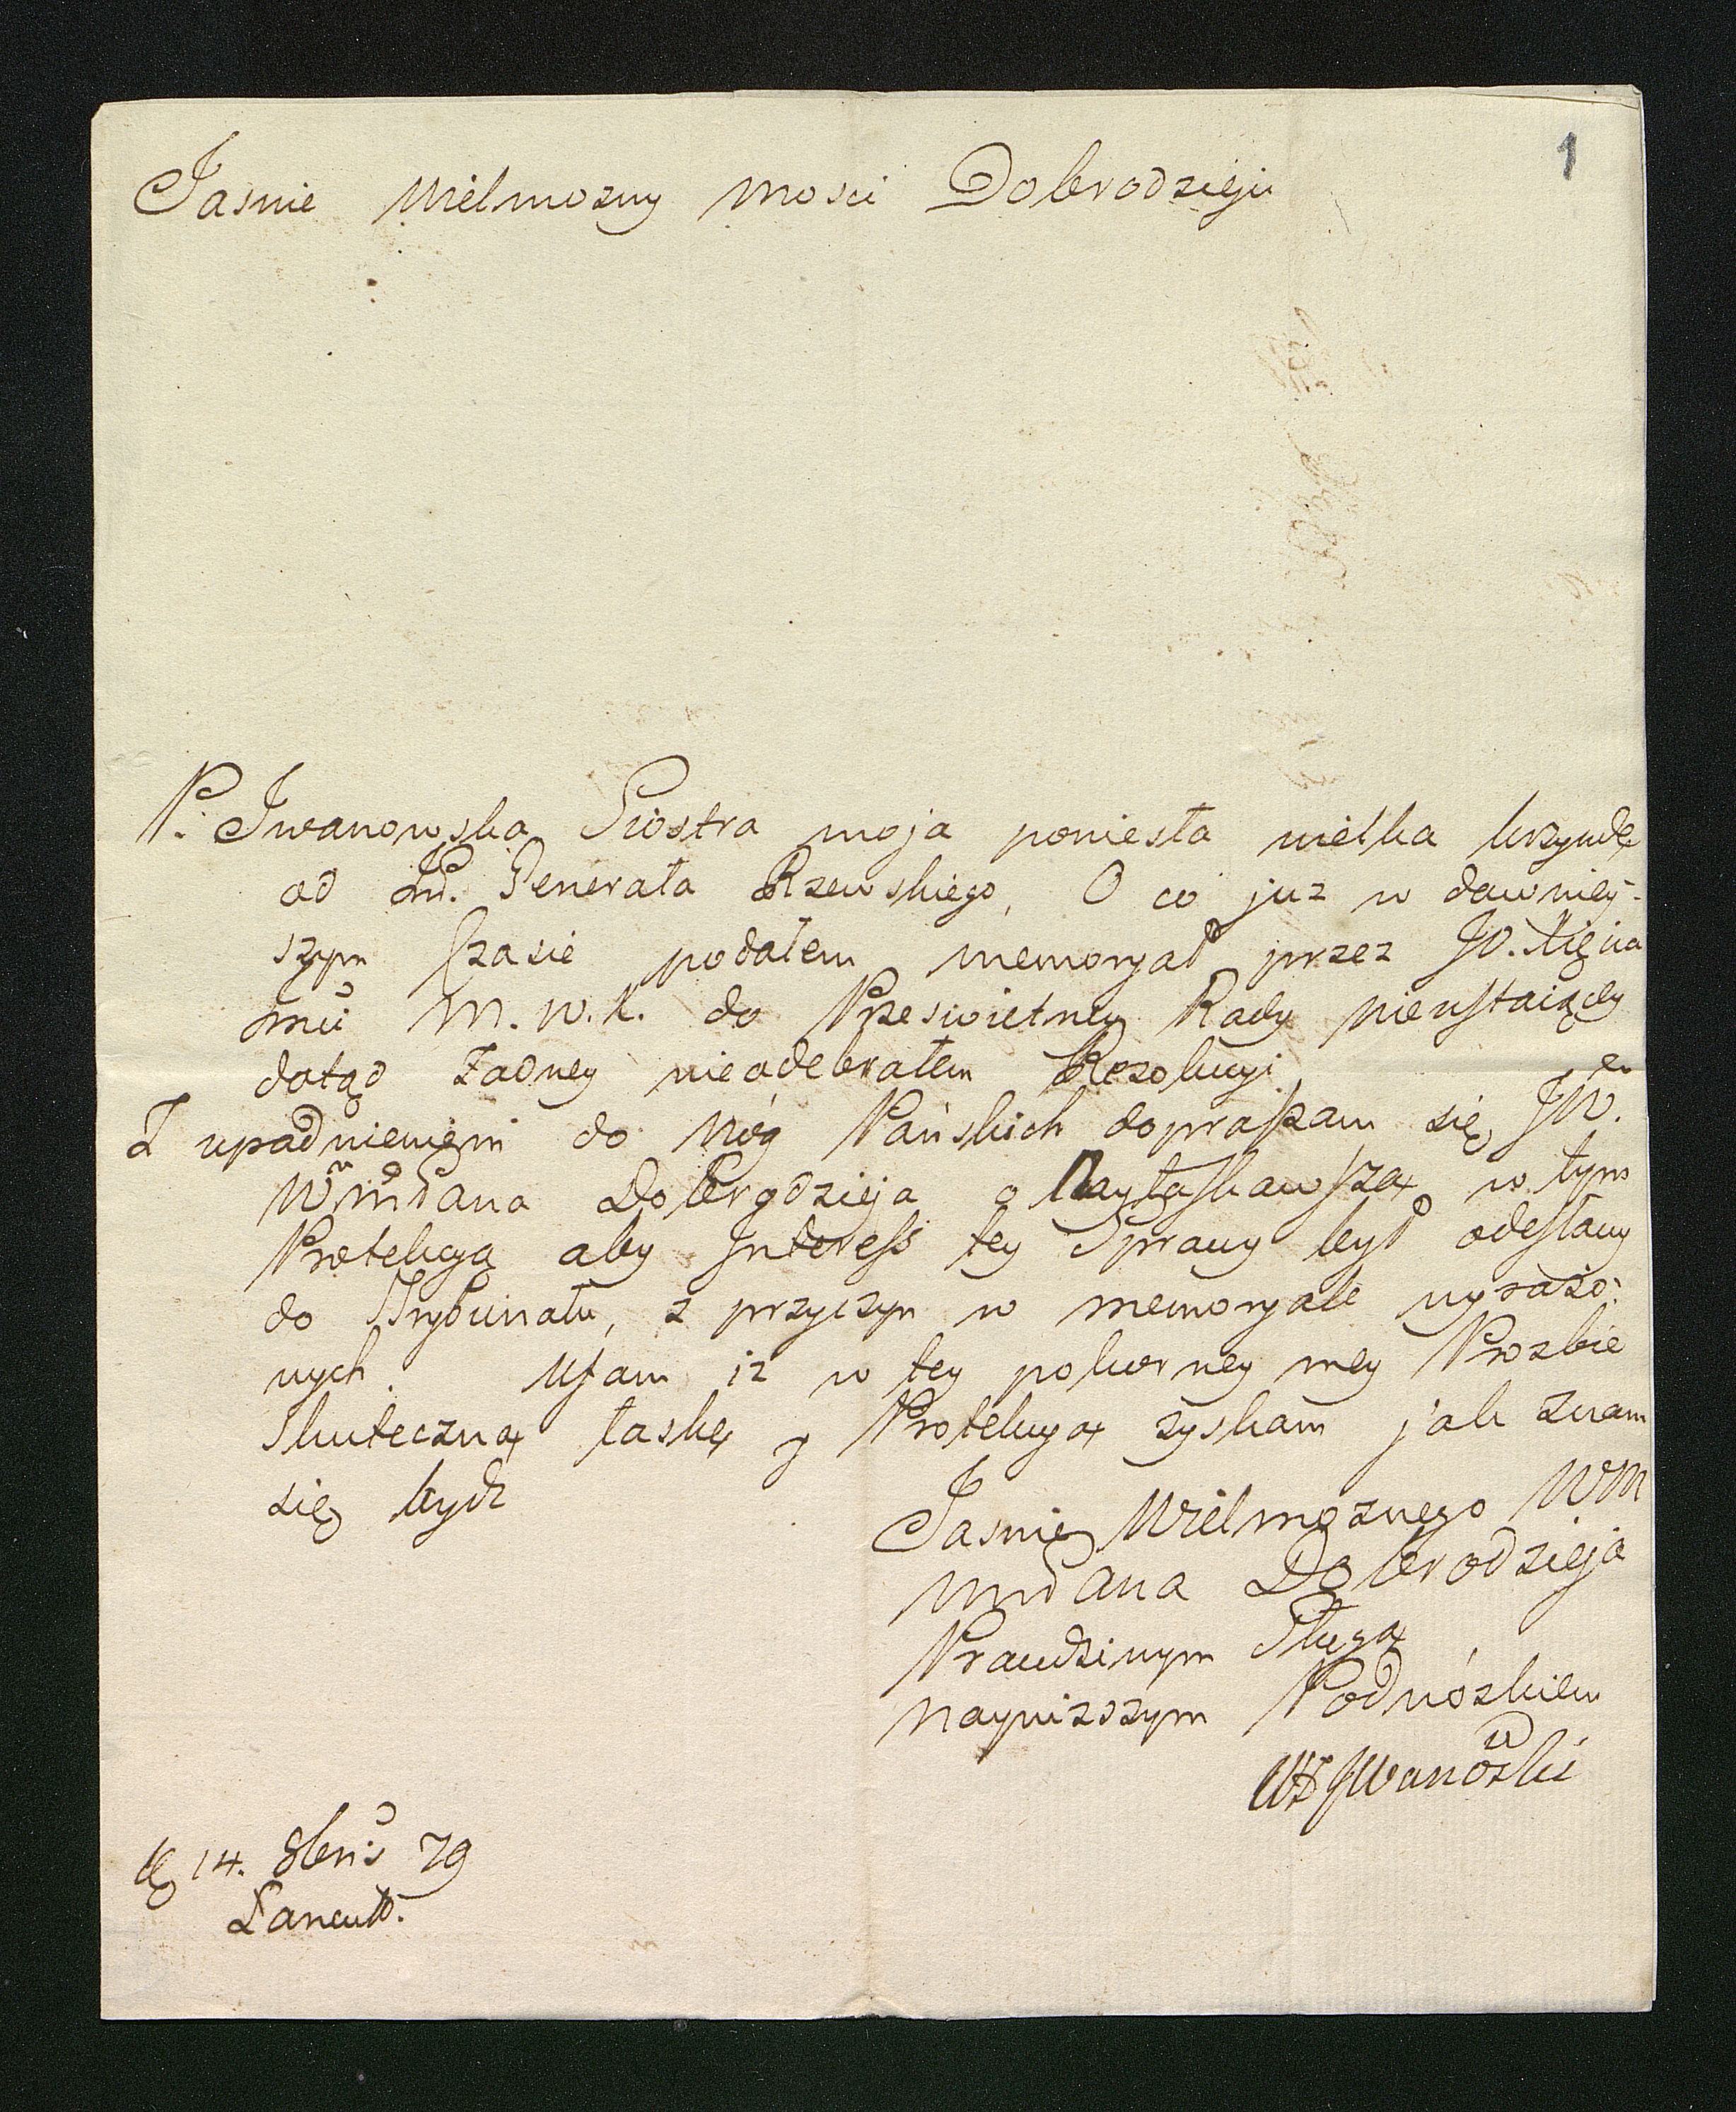 1
Jasnie Wielmozny Mosci Dobrodzieju
P. Iwanowska Siostra moja poniesła wielka krzywdę
od Jm̃. Generała Rzewskiego, O co już w dawniey-
szym Czasie podałem memoryał przez JO. Xięcia
Jmći M. W. K. do Przeswietney Rady Nieustaiącey
dotąd Żadney nieodebrałem Rezolucyi,
Z upadnieniem do Nóg Pańskich dopraszam się JW.
WmPana Dobrodzieja o Nayłaskawszą w tym
Protekcyą aby Interess tey Sprawy był odesłany
do Trybunału, z przyczyn w memoryale wyrażo-
nych. Ufam iz w tey pokorney mey Prozbie
Skuteczną łaskę y Protekcyą zyskam jak znam
się bydz
Jasnie Wielmoznego WM
MPana Dobrodzieja
Prawdziwym Sługą
Nayniższym Podnóżkiem
Iwanowski
d 14. 8bris 79
Łancutt.